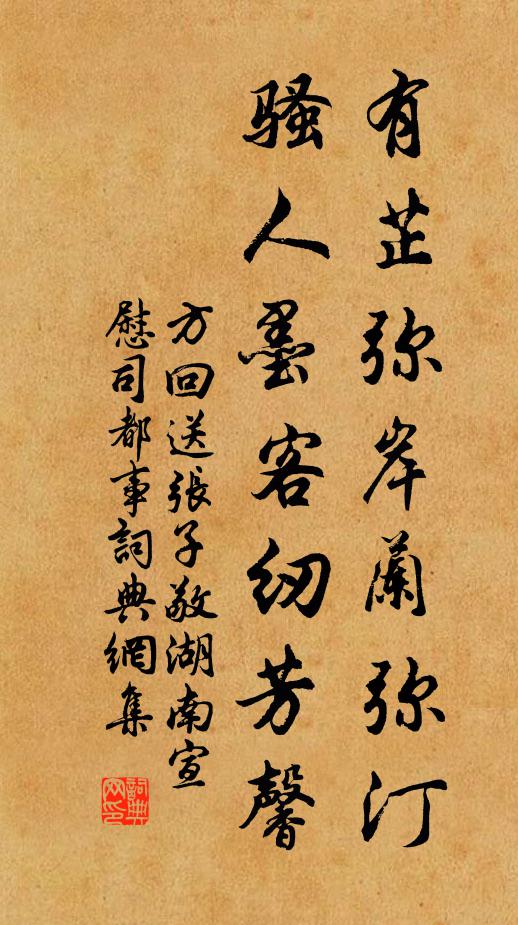 有芷弥岸蘭弥汀
騷人墨客纫芳馨
方回送張子敬湖南宣
慰司都事詞典網集
詞典
网印